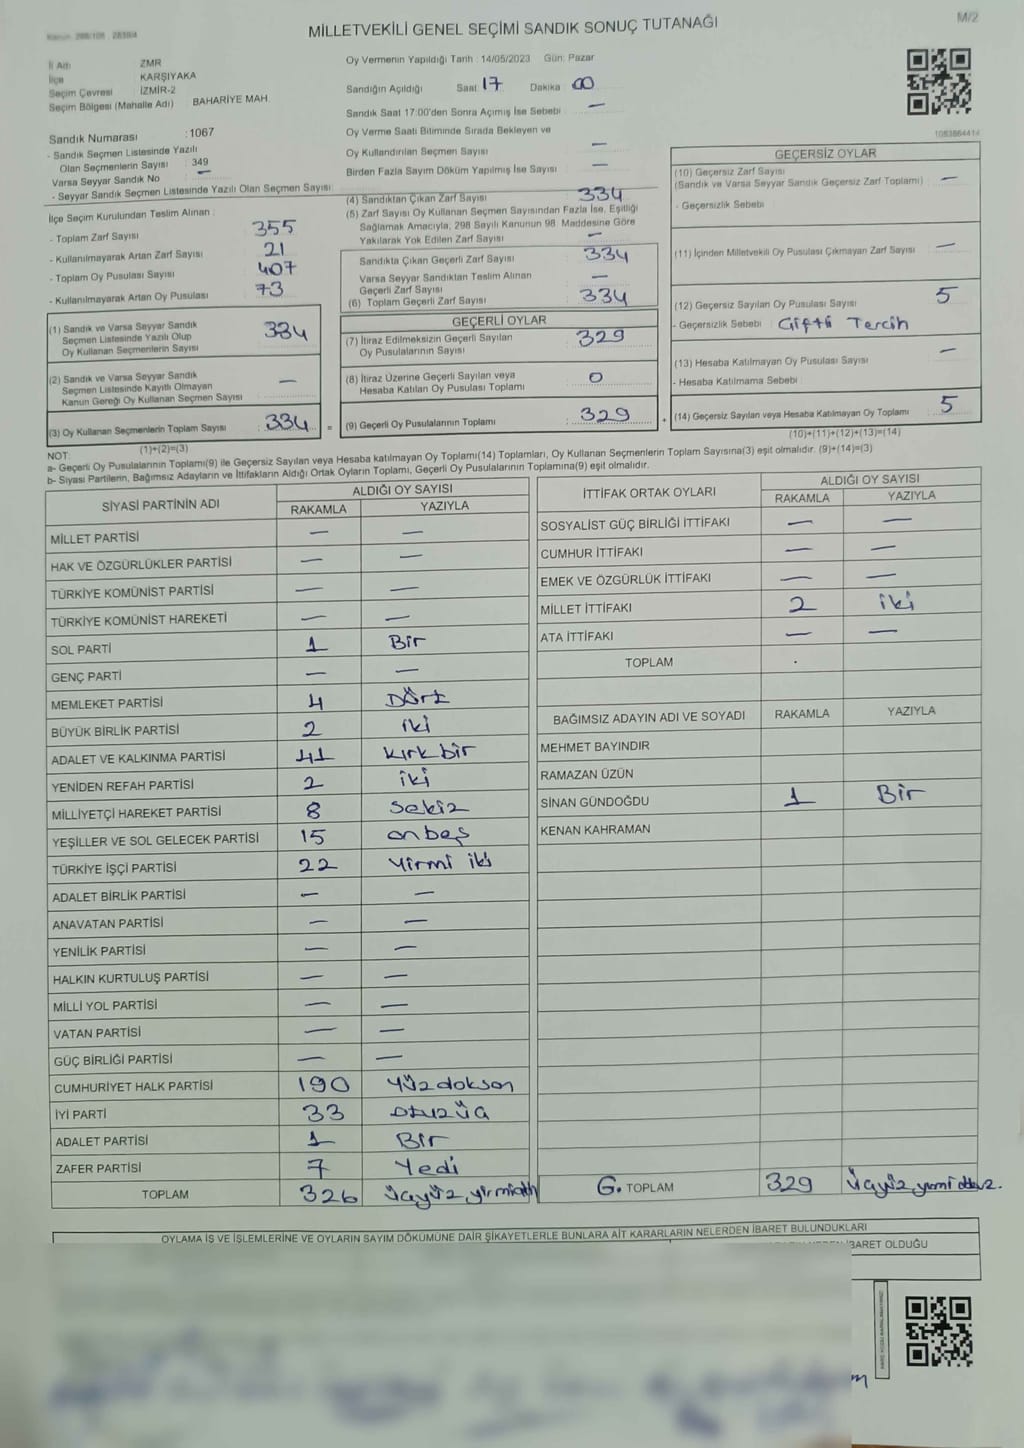 M/2
MİLLETVEKİLİ GENEL SEÇİMİ SANDIK SONUÇ TUTANAĞI
İl Adı ZMR
İlçe KARŞIYAKA
Seçim Çevresi : İZMİR-2
Seçim Bölgesi (Mahalle Adı) BAHARİYE MAH.
Sandık Numarası : 1067
- Sandık Seçmen Listesinde Yazılı
Olan Seçmenlerin Sayısı : 349
Varsa Seyyar Sandık No —
- Seyyar Sandık Seçmen Listesinde Yazılı Olan Seçmen Sayısı
Oy Vermenin Yapıldığı Tarih : 14/05/2023 Gün: Pazar
Sandığın Açıldığı Saat 17 Dakika 00
Sandık Saat 17:00'den Sonra Açımış İse Sebebi : —
Oy Verme Saati Bitiminde Sırada Bekleyen ve
Oy Kullandırılan Seçmen Sayısı —
Birden Fazla Sayım Döküm Yapılmış İse Sayısı —
1083864414
İlçe Seçim Kurulundan Teslim Alınan :
- Toplam Zarf Sayısı 355
- Kullanılmayarak Artan Zarf Sayısı 21
- Toplam Oy Pusulası Sayısı 407
- Kullanılmayarak Artan Oy Pusulası 73
(1) Sandık ve Varsa Seyyar Sandık
Seçmen Listesinde Yazılı Olup
Oy Kullanan Seçmenlerin Sayısı 334
(2) Sandık ve Varsa Seyyar Sandık
Seçmen Listesinde Kayıtlı Olmayan
Kanun Gereği Oy Kullanan Seçmen Sayısı —
(3) Oy Kullanan Seçmenlerin Toplam Sayısı : 334 =
(1)+(2)=(3)
(4) Sandıktan Çıkan Zarf Sayısı 334
(5) Zarf Sayısı Oy Kullanan Seçmen Sayısından Fazla İse, Eşitliği
Sağlamak Amacıyla, 298 Sayılı Kanunun 98. Maddesine Göre
Yakılarak Yok Edilen Zarf Sayısı —
Sandıkta Çıkan Geçerli Zarf Sayısı : 334
Varsa Seyyar Sandıktan Teslim Alınan
Geçerli Zarf Sayısı —
(6) Toplam Geçerli Zarf Sayısı : 334
GEÇERLİ OYLAR
(7) İtiraz Edilmeksizin Geçerli Sayılan
Oy Pusulalarının Sayısı : 329
(8) İtiraz Üzerine Geçerli Sayılan veya
Hesaba Katılan Oy Pusulası Toplamı : 0
(9) Geçerli Oy Pusulalarının Toplamı : 329 +
GEÇERSİZ OYLAR
(10) Geçersiz Zarf Sayısı
(Sandık ve Varsa Seyyar Sandık Geçersiz Zarf Toplamı) : —
- Geçersizlik Sebebi :
(11) İçinden Milletvekili Oy Pusulası Çıkmayan Zarf Sayısı : —
(12) Geçersiz Sayılan Oy Pusulası Sayısı : 5
- Geçersizlik Sebebi : Çiftli Tercih
(13) Hesaba Katılmayan Oy Pusulası Sayısı : —
- Hesaba Katılmama Sebebi :
(14) Geçersiz Sayılan veya Hesaba Katılmayan Oy Toplamı : 5
(10)+(11)+(12)+(13)=(14)
NOT:
a- Geçerli Oy Pusulalarının Toplamı(9) ile Geçersiz Sayılan veya Hesaba katılmayan Oy Toplamı(14) Toplamları, Oy Kullanan Seçmenlerin Toplam Sayısına(3) eşit olmalıdır. (9)+(14)=(3)
b- Siyasi Partilerin, Bağımsız Adayların ve İttifakların Aldığı Ortak Oyların Toplamı, Geçerli Oy Pusulalarının Toplamına(9) eşit olmalıdır.
SİYASİ PARTİNİN ADI ALDIĞI OY SAYISI
RAKAMLA YAZIYLA
MİLLET PARTİSİ — —
HAK VE ÖZGÜRLÜKLER PARTİSİ — —
TÜRKİYE KOMÜNİST PARTİSİ — —
TÜRKİYE KOMÜNİST HAREKETİ — —
SOL PARTİ 1 Bir
GENÇ PARTİ — —
MEMLEKET PARTİSİ 4 Dört
BÜYÜK BİRLİK PARTİSİ 2 iki
ADALET VE KALKINMA PARTİSİ 41 kırk bir
YENİDEN REFAH PARTİSİ 2 iki
MİLLİYETÇİ HAREKET PARTİSİ 8 sekiz
YEŞİLLER VE SOL GELECEK PARTİSİ 15 onbeş
TÜRKİYE İŞÇİ PARTİSİ 22 Yirmi iki
ADALET BİRLİK PARTİSİ — —
ANAVATAN PARTİSİ — —
YENİLİK PARTİSİ — —
HALKIN KURTULUŞ PARTİSİ — —
MİLLİ YOL PARTİSİ — —
VATAN PARTİSİ — —
GÜÇ BİRLİĞİ PARTİSİ — —
CUMHURİYET HALK PARTİSİ 190 Yüzdoksan
İYİ PARTİ 33 otuzüç
ADALET PARTİSİ 1 Bir
ZAFER PARTİSİ 7 Yedi
TOPLAM 326 üçyüz yirmialtı
İTTİFAK ORTAK OYLARI ALDIĞI OY SAYISI
RAKAMLA YAZIYLA
SOSYALİST GÜÇ BİRLİĞİ İTTİFAKI — —
CUMHUR İTTİFAKI — —
EMEK VE ÖZGÜRLÜK İTTİFAKI — —
MİLLET İTTİFAKI 2 iki
ATA İTTİFAKI — —
TOPLAM .
BAĞIMSIZ ADAYIN ADI VE SOYADI RAKAMLA YAZIYLA
MEHMET BAYINDIR
RAMAZAN ÜZÜN
SİNAN GÜNDOĞDU 1 Bir
KENAN KAHRAMAN
G. TOPLAM 329 üçyüz
OYLAMA İŞ VE İŞLEMLERİNE VE OYLARIN SAYIM DÖKÜMÜNE DAİR ŞİKAYETLERLE BUNLARA AİT KARARLARIN NELERDEN İBARET BULUNDUKLARI
İBARET OLDUĞU